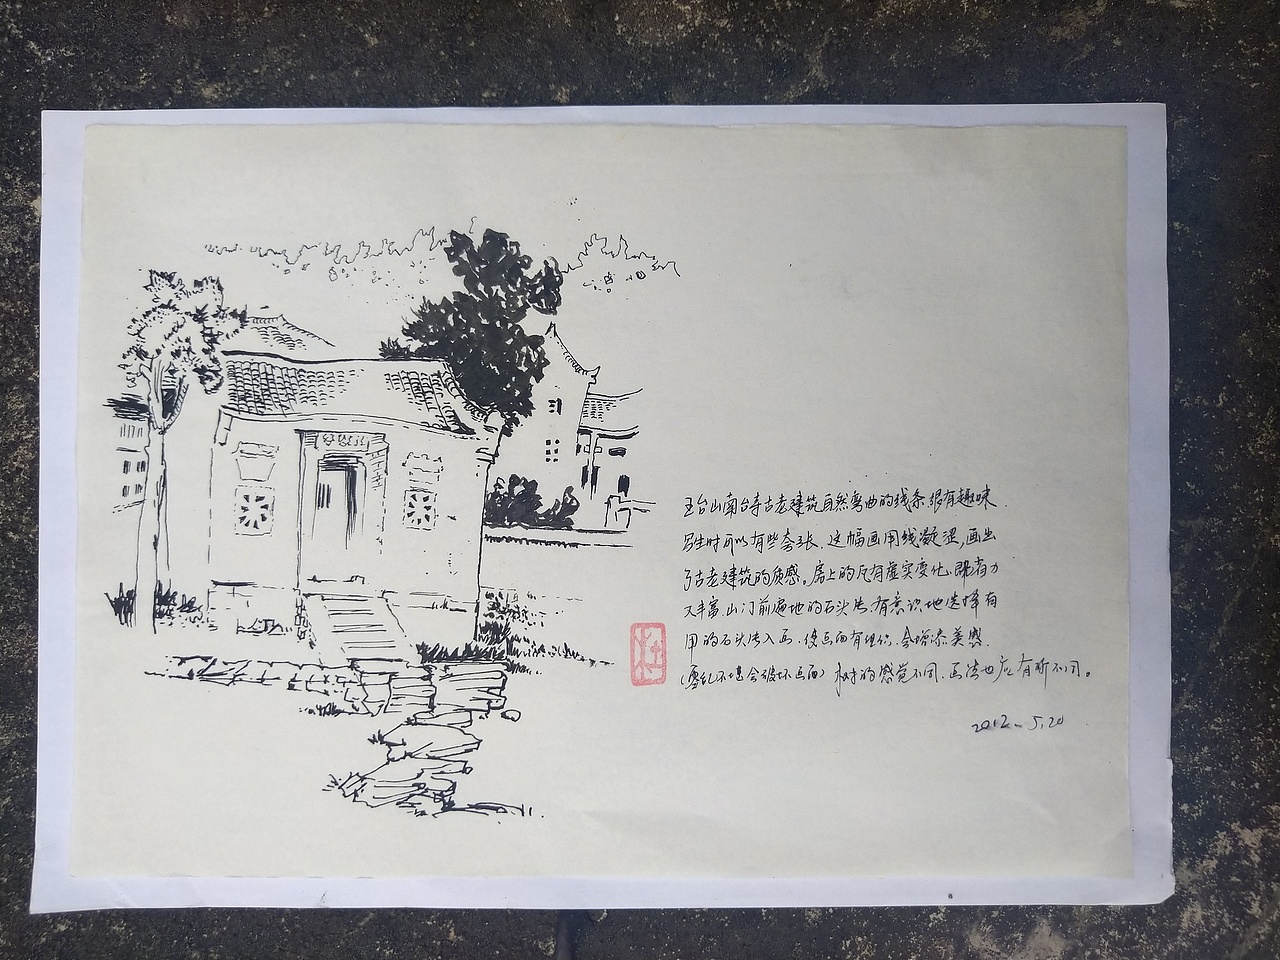 五台山南台寺古老建筑自然弯曲的线条很有趣味.
写生时可以有些夸张.这幅画用线凝涩,画出
了古老建筑的质感。房上的瓦有虚实变化,既省力
又丰富.山门前遍地的石头片,有意识地选择有
用的石头片入画.使画面有组织.会增添美感.
(零乱不堪会破坏画面)树的感觉不同.画法也应有所不同。
2012-5.20